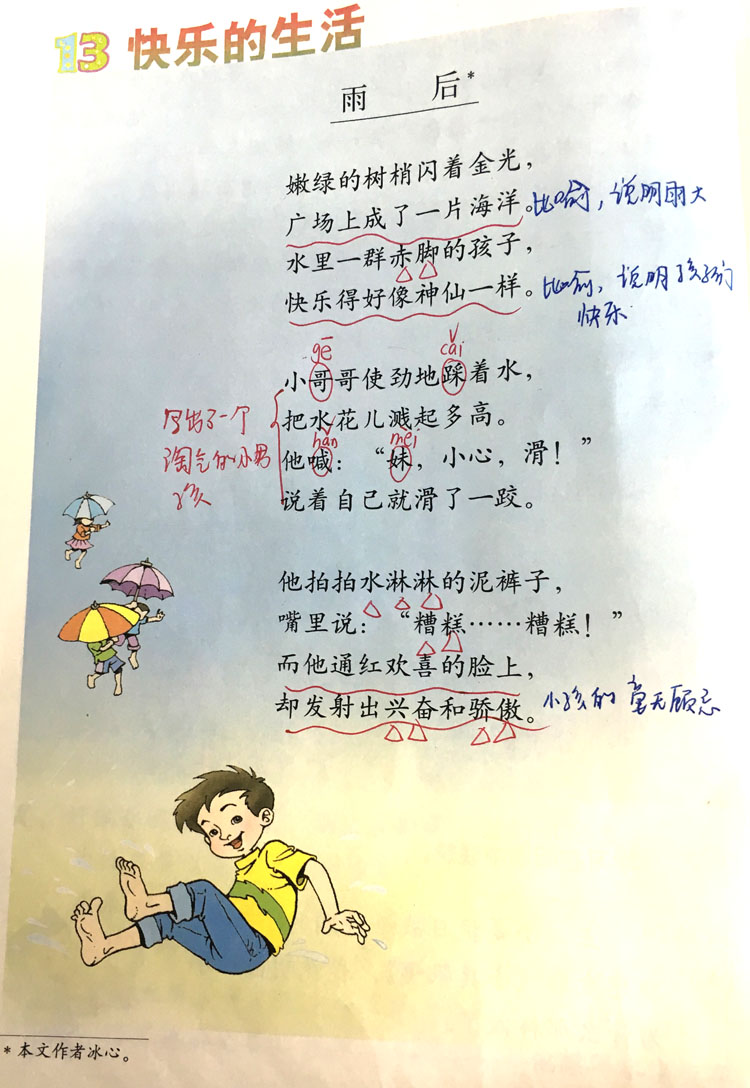 13 快乐的生活
雨 后*
嫩绿的树梢闪着金光，
广场上成了一片海洋。
比喻，说明雨大
水里一群赤脚的孩子，
快乐得好像神仙一样。
比喻，说明孩子们
快乐
gē
cǎi
小哥哥使劲地踩着水，
把水花儿溅起多高。
hǎn
mèi
他喊：“妹，小心，滑！”
说着自己就滑了一跤。
写出了一个
淘气的小男
孩
他拍拍水淋淋的泥裤子，
嘴里说：“糟糕……糟糕！”
而他通红欢喜的脸上，
却发射出兴奋和骄傲。
小孩的童无顾忌
*本文作者冰心。